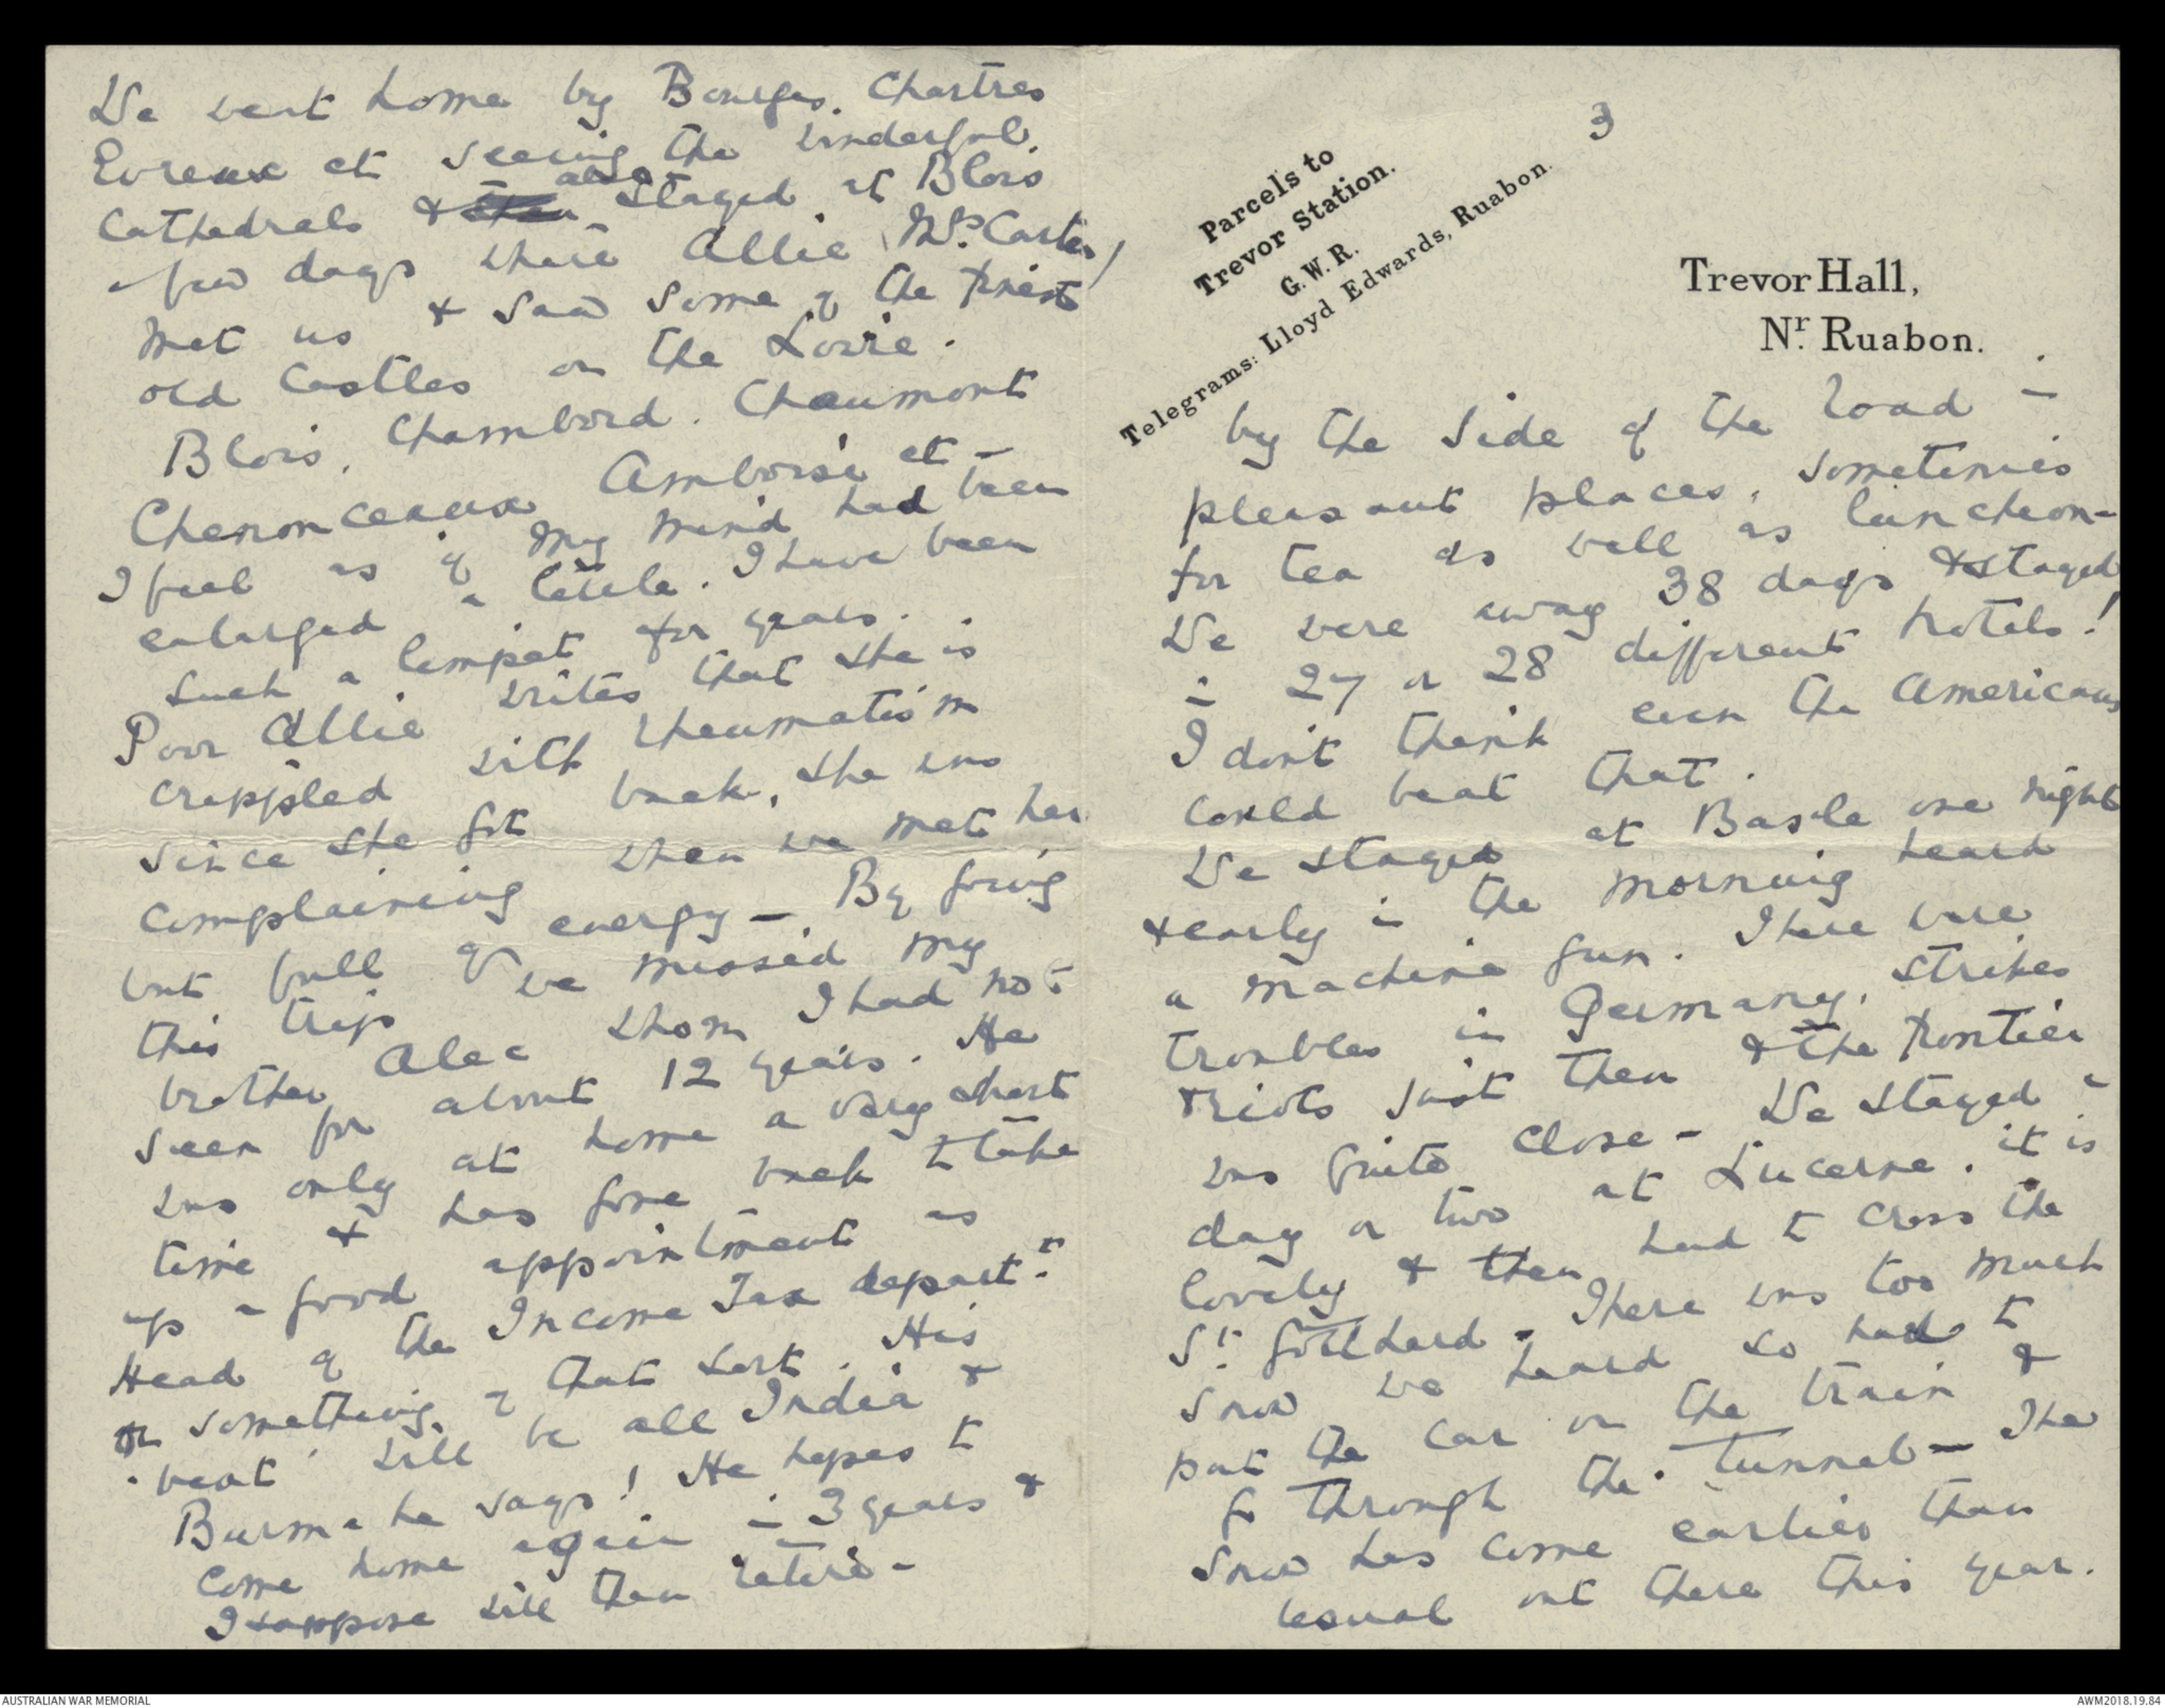 We went home by Bourges. Chartres
Evreux etc seeing the wonderful
Cathedrals & then also stayed at Blois
a few days where Allie (Mrs. Carter)
met us & saw some of the finest
old Castles on the Loire.
Blois, Chambord. Chaumont
Chenonceaux Amboise etc -
I feel as if my mind had been
enlarged a little. I have been
such a limpet for years.
Poor Allie writes that she is
crippled with rheumatism
since she got back, she was
complaining when we met her
but full of energy - By going
this trip we missed my
brother Alec whom I had not
seen for about 12 years. He
was only at home a very short
time & has gone back to take
up a good appointment as
Head of the Income Tax depart.t
or something of that sort. His
beat will be all India &
Burma he says! He hopes to
come home again in 3 years &
I suppose will then retire -
3
Parcels to
Trevor Station.
G.W.R.
Telegrams: Lloyd Edwards, Ruabon.
Trevor Hall,
Nr. Ruabon.
by the side of the road in
pleasant places, sometimes
for tea as well as luncheon -
We were away 38 days & stayed
in 27 or 28 different hotels!
I don't think even the Americans
could beat that.
We stayed at Basle one night
& early in the morning heard
a machine gun. There were
troubles in Germany, strikes
& riots just then & the frontier
was quite close - We stayed a
day or two at Lucerne, it is
lovely & then had to cross the
St. Gotthard - There was too much
snow we heard so had to
put the car on the train &
go through the tunnel - The
snow has come earlier than
usual out there this year.
AUSTRALIAN WAR MEMORIAL
AWM2018.19.84